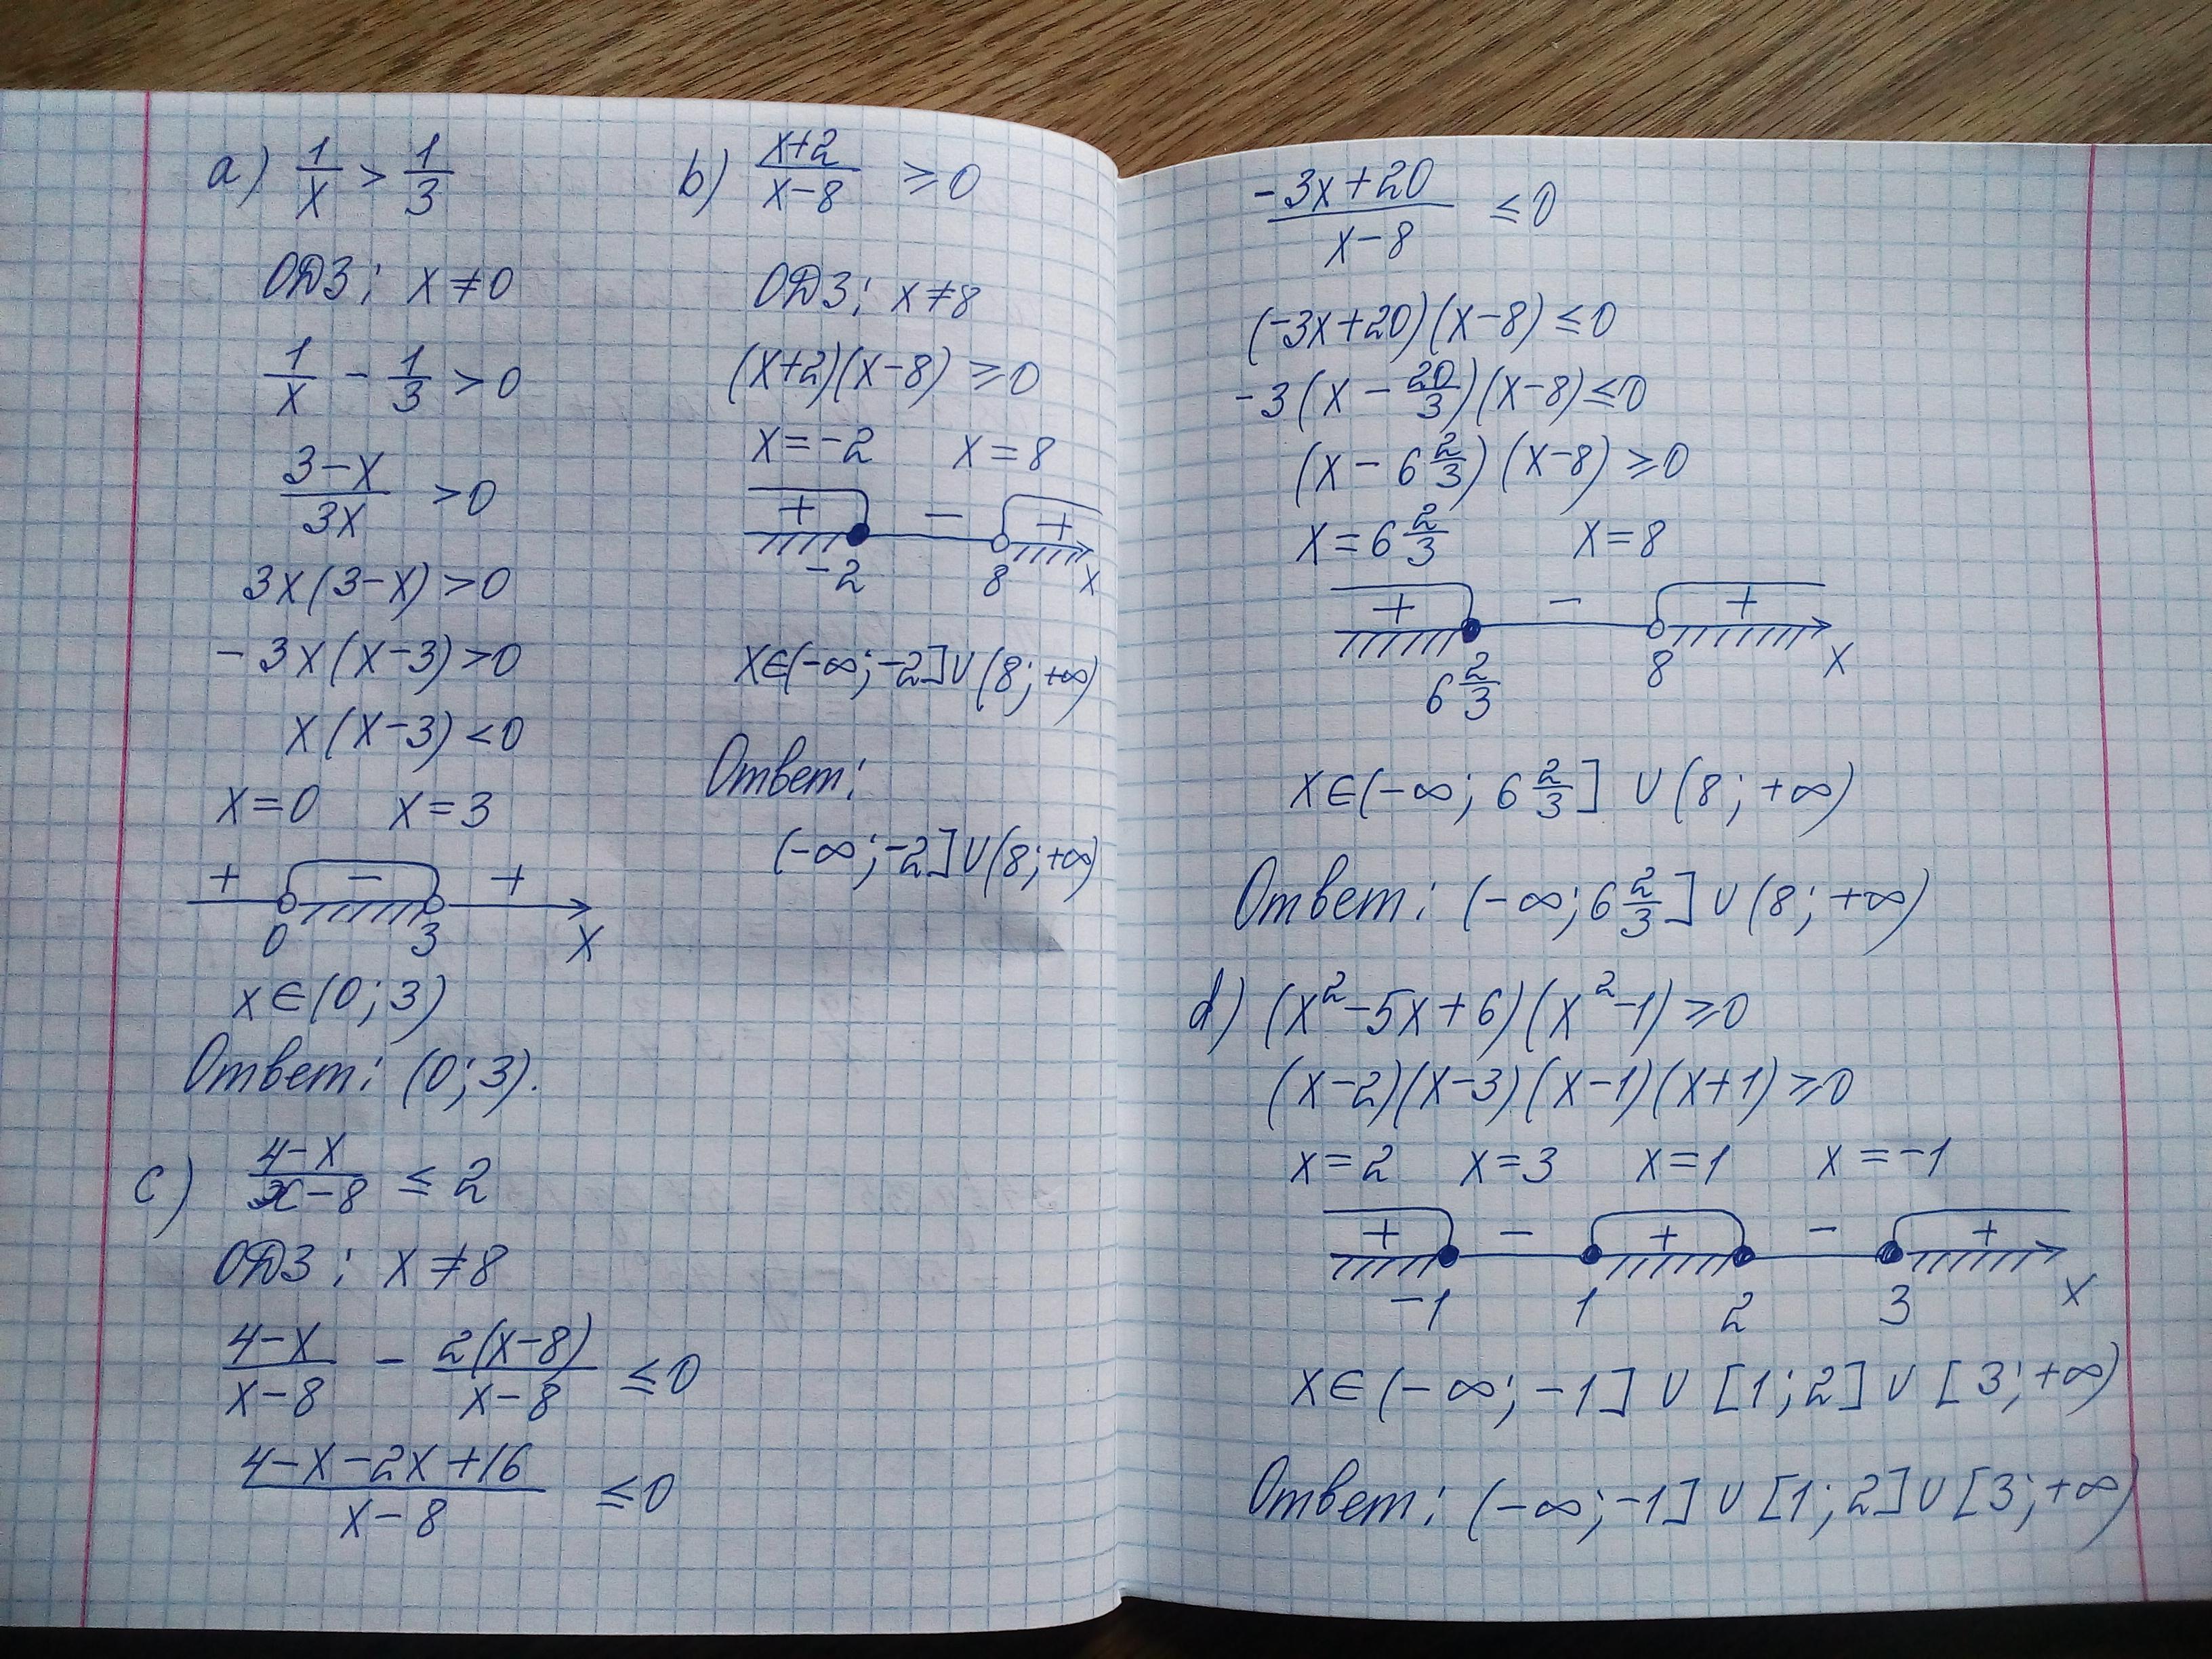 a) 1/x > 1/3
ОДЗ: x ≠ 0
1/x - 1/3 > 0
(3-x)/(3x) > 0
3x(3-x) > 0
-3x(x-3) > 0
x(x-3) < 0
x=0 x=3
+ - +
0 3 x
x∈(0;3)
Ответ: (0;3).
b) (x+2)/(x-8) ≥ 0
ОДЗ: x ≠ 8
(x+2)(x-8) ≥ 0
x=-2 x=8
+ - +
-2 8 x
x∈(-∞;-2]∪(8;+∞)
Ответ:
(-∞;-2]∪(8;+∞)
c) (4-x)/(x-8) ≤ 2
ОДЗ: x ≠ 8
(4-x)/(x-8) - 2(x-8)/(x-8) ≤ 0
(4-x-2x+16)/(x-8) ≤ 0
(-3x+20)/(x-8) ≤ 0
(-3x+20)(x-8) ≤ 0
-3(x - 20/3)(x-8) ≤ 0
(x - 6 2/3)(x-8) ≥ 0
x = 6 2/3 x=8
+ - +
6 2/3 8 x
x∈(-∞; 6 2/3] ∪ (8; +∞)
Ответ: (-∞; 6 2/3] ∪ (8; +∞)
d) (x²-5x+6)(x²-1) ≥ 0
(x-2)(x-3)(x-1)(x+1) ≥ 0
x=2 x=3 x=1 x=-1
+ - + - +
-1 1 2 3 x
x∈(-∞;-1] ∪ [1;2] ∪ [3;+∞)
Ответ: (-∞;-1] ∪ [1;2] ∪ [3;+∞)